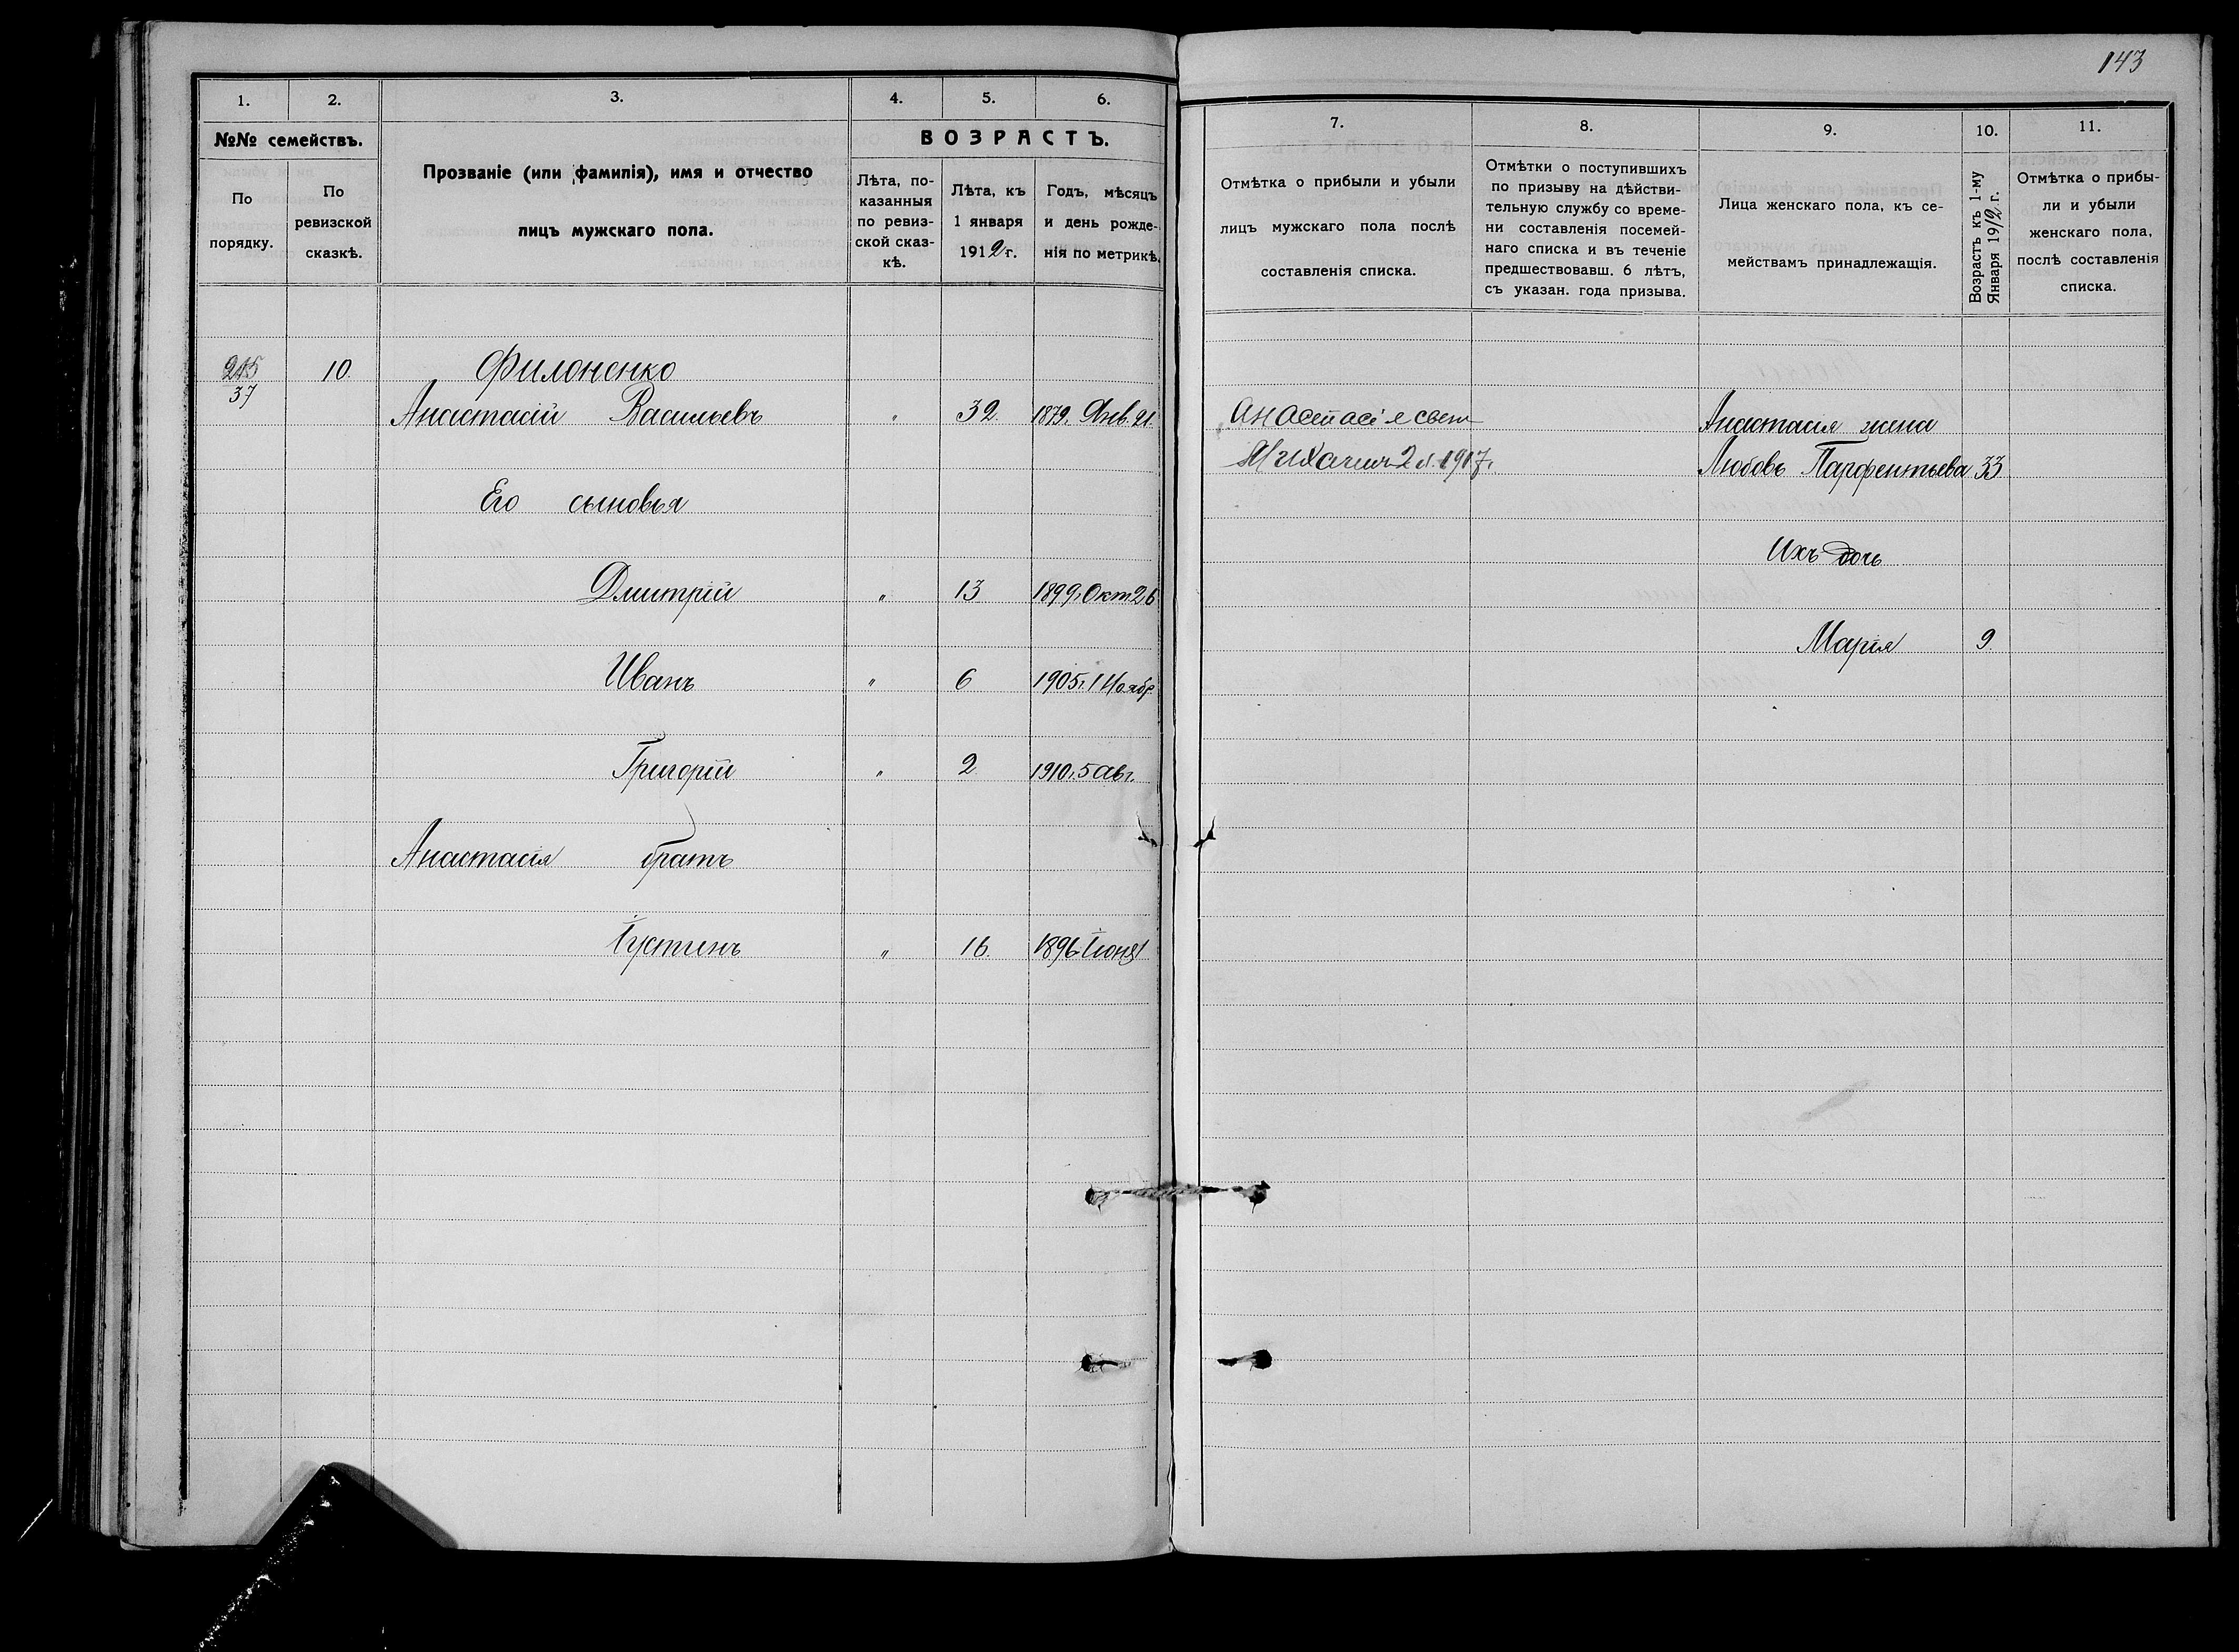 143
1. 2. 3. 4. 5. 6.
№№ семействъ.
По порядку.
По ревизской сказкѣ.
Прозваніе (или фамилія), имя и отчество
лицъ мужскаго пола.
ВОЗРАСТЪ.
Лѣта, по-
казанныя
по ревиз-
ской сказ-
кѣ.
Лѣта, къ
1 января
1912 г.
Годъ, мѣсяцъ
и день рожде-
нія по метрикѣ.
7. 8. 9. 10. 11.
Отмѣтка о прибыли и убыли
лицъ мужскаго пола послѣ
составленія списка.
Отмѣтки о поступившихъ
по призыву на дѣйстви-
тельную службу со време-
ни составленія посемей-
наго списка и въ теченіе
предшествовавш. 6 лѣтъ,
съ указан. года призыва.
Лица женскаго пола, къ се-
мействамъ принадлежащія.
Возрастъ къ 1-му
Января 1912 г.
Отмѣтка о прибы-
ли и убыли
женскаго пола,
послѣ составленія
списка.
10 Филоненко
37
Анастасій Васильевъ " 32. 1879. Янв. 21.
Его сыновья
Дмитрій " 13 1899. Окт 26
Иванъ " 6 1905. 1 Ноябр
Григорій " 2 1910. 5 авг.
Анастасія братъ
Іустинъ " 16. 1896 Іюня 1
Анастасія
1917.
Анастасія жена
Любовь Парфентьева 33
Ихъ дочь
Марія 9.